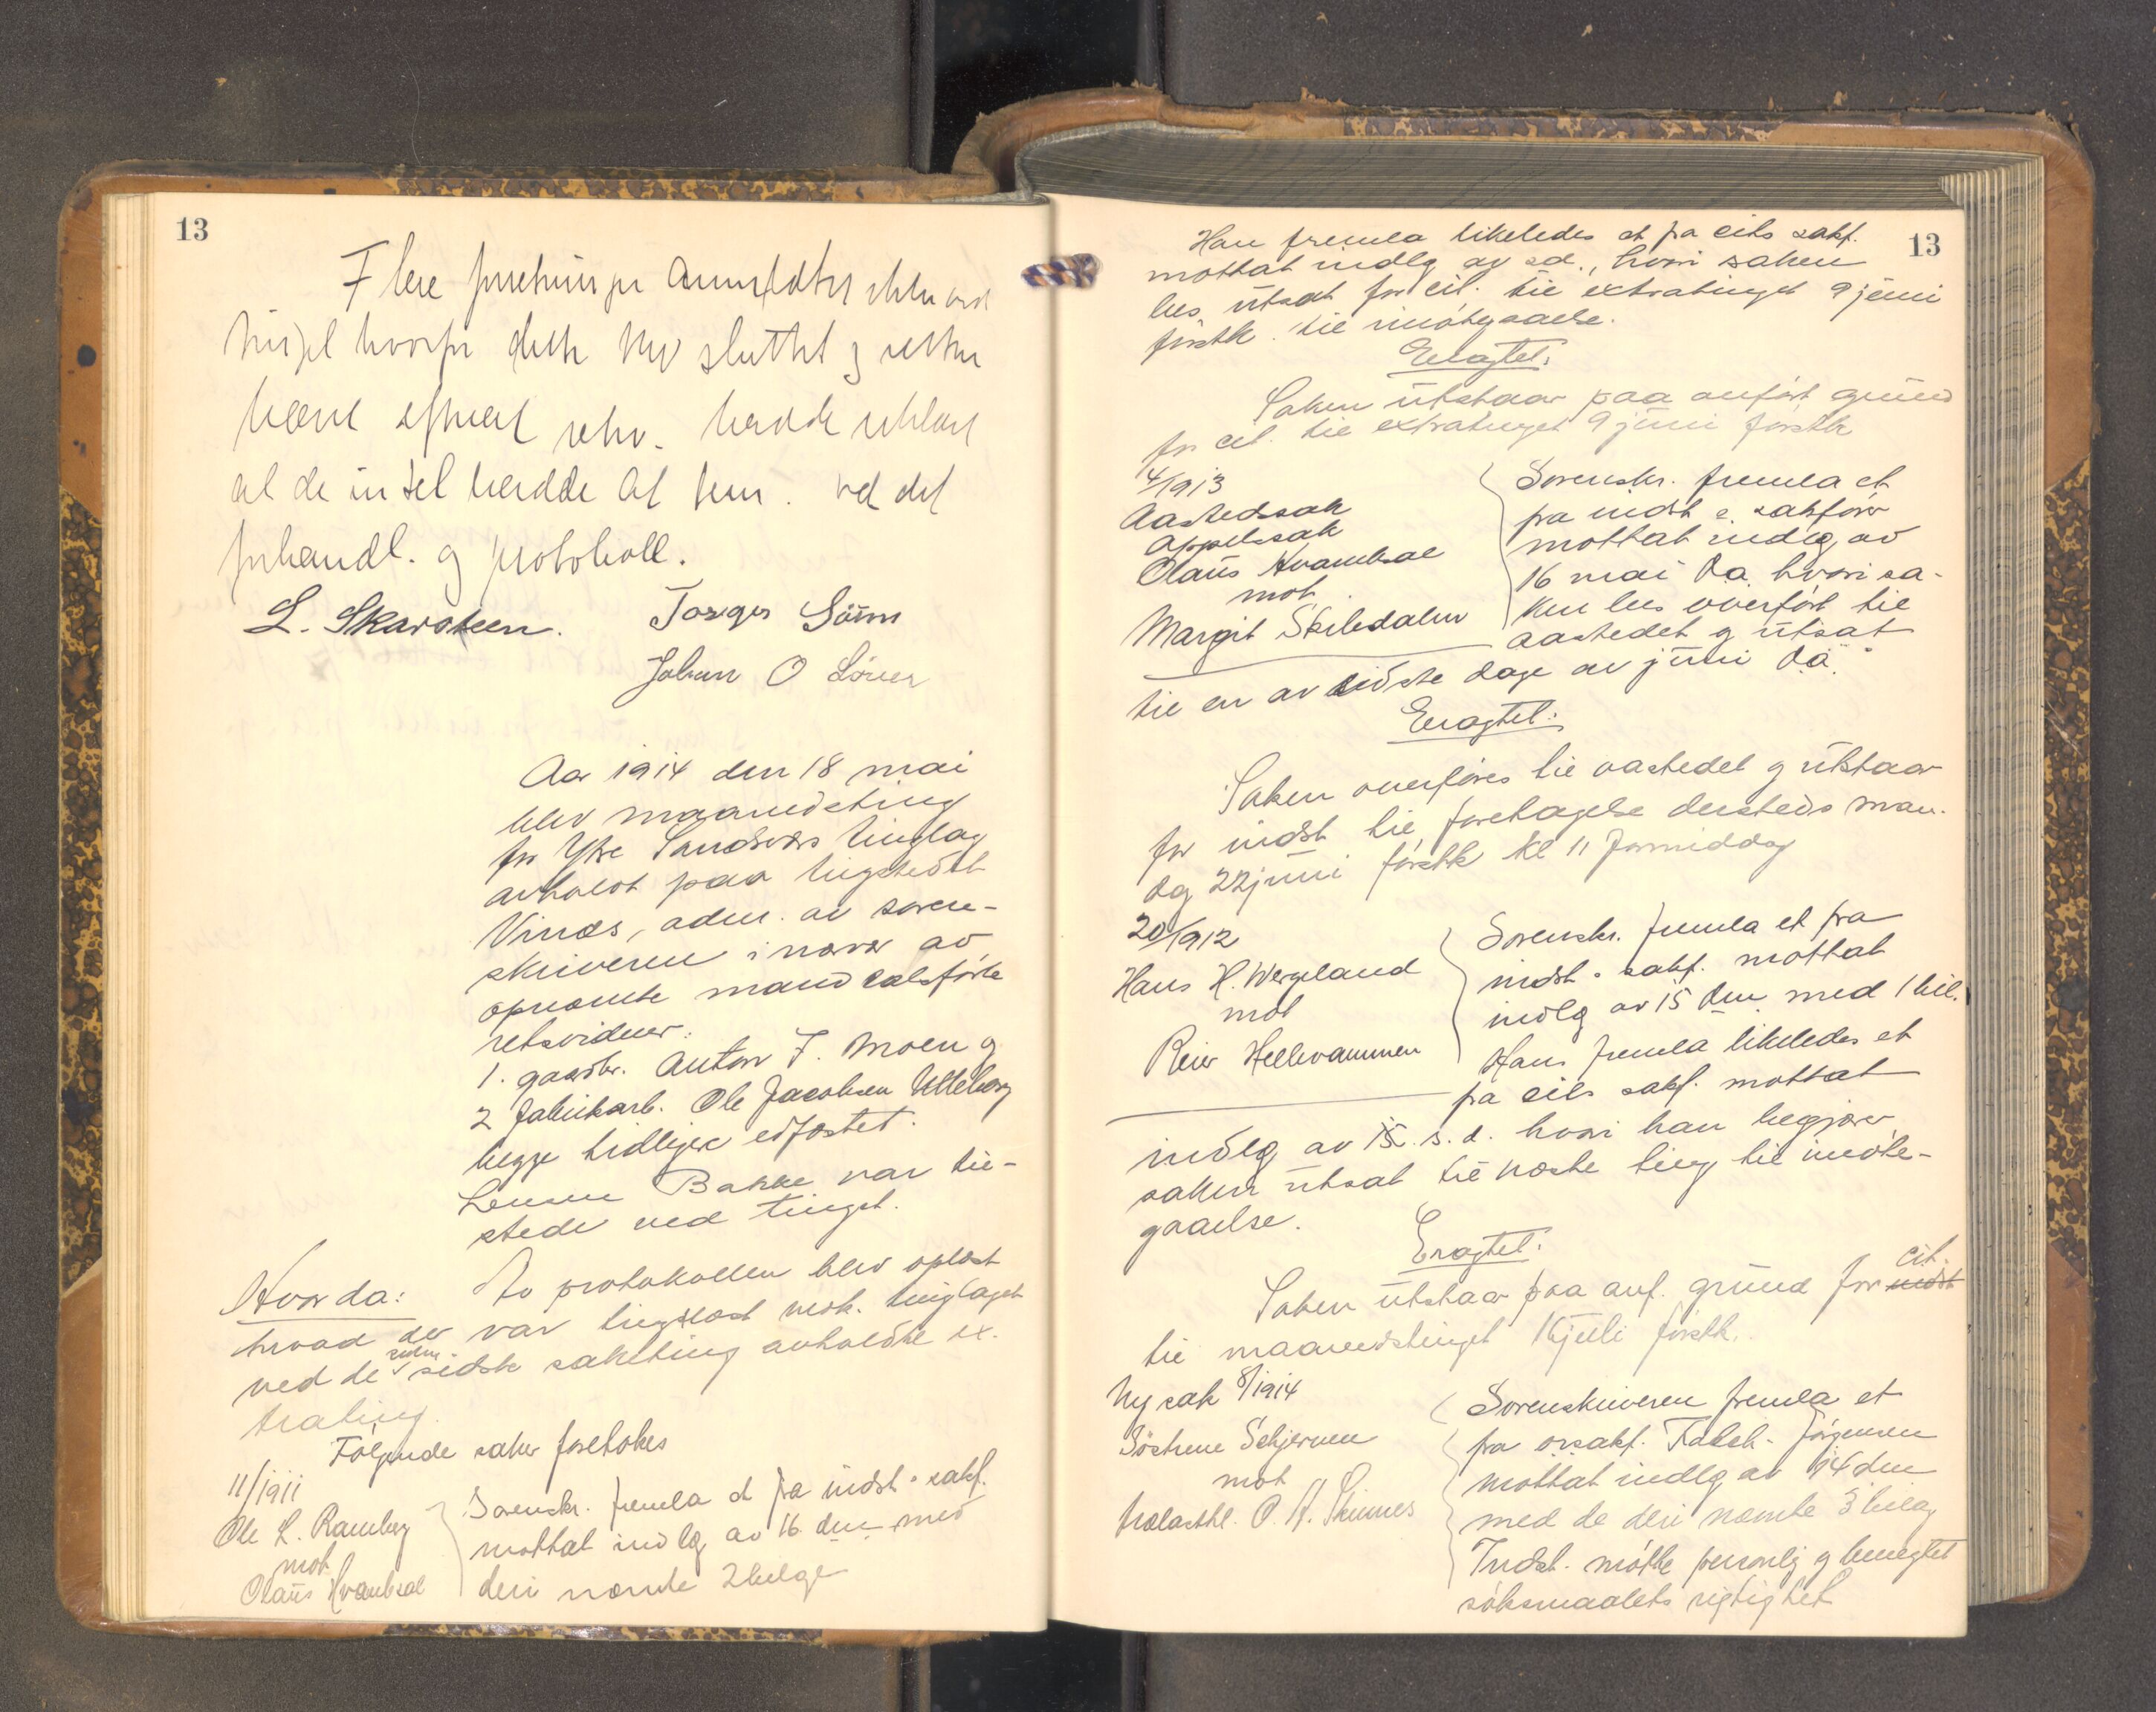 13
Flere forretninger anmeldtes ikke ved
tinget hvorfor dette blev sluttet og retten
hævet
al de intet hadde at bem. ved det
forhandl. og protokoll.
L. Skarsteen. Torger
Johan O
Aar 1914 den 18 mai
blev maanedsting
for Ytre Sandsvær tinglag
avholdt paa tingstedet
Vinæs, adm. av soren-
skriveren i nærvær av
opnævnte mand
retsvidner:
1. gaardbr. Anton F. Moen g
2 fabrikarb. Ole Jacobsen Ulleberg
begge tidligere edfæstet.
Lensm Bakke var til-
stede ved tinget.
Hvorda: Av protokollen blev oplæst
hvad der var tinglæst vedk. tinglaget
ved de siden sidste sakting avholdte ex-
trating.
Følgende saker foretokes
11/1911
Ole L. Ramberg
mot
Olaus Kvambæl
Sorenskr. fremla et fra indst s sakf.
mottat indlg av 16 dm med
deri nævnte 2 bilage
13
Han fremla likeledes et fra cits sakf.
mottat indlg av s.d., hvori saken
bes utsat for cit. til extratinget 9 juni
førstk. til imøtegaaelse.
Eragtet:
Saken utstaar paa anført grund
for cit. til extratinget 9 juni førstk
4/1913
Aastedssak
appelsak
Olaus Kvambæl
mot
Margit Skiledalen
Sorenskr. fremla et
fra indst s. sakfører
mottat indlæg av
16 mai d.a. hvori sa-
ken bes overført til
aastedet g utsat
til en av sidste dage av juni d.a.
Eragtet:
Saken overføres til aastedet g utstaar
for indst til foretagelse dersteds man-
dag 22 juni førstk kl 11 formiddag
20/1912
Hans H. Wergeland
mot
Reier Hellevammen
Sorenskr. fremla et fra
indst s sakf. mottat
indlg av 15 dm med 1 bil.
Han fremla likeledes et
fra cits sakf. mottat
indlg av 15. s.d. hvori han begjærer
saken utsat til næste ting til imøte-
gaaelse.
Eragtet:
Saken utstaar paa anf. grund for indst cit.
til maanedstinget juli førstk.
Ny sak 8/1914
Søstrene Schjerven
mot
trælasthl. O. A. Skinnes
Sorenskriveren fremla et
fra o.r.sakf. Falch-Jørgensen
mottat indlg av 14 dm
med de deri nævnte 3 bilag
Indst. møtte personlig g benegtet
søksmaalets rigtighet